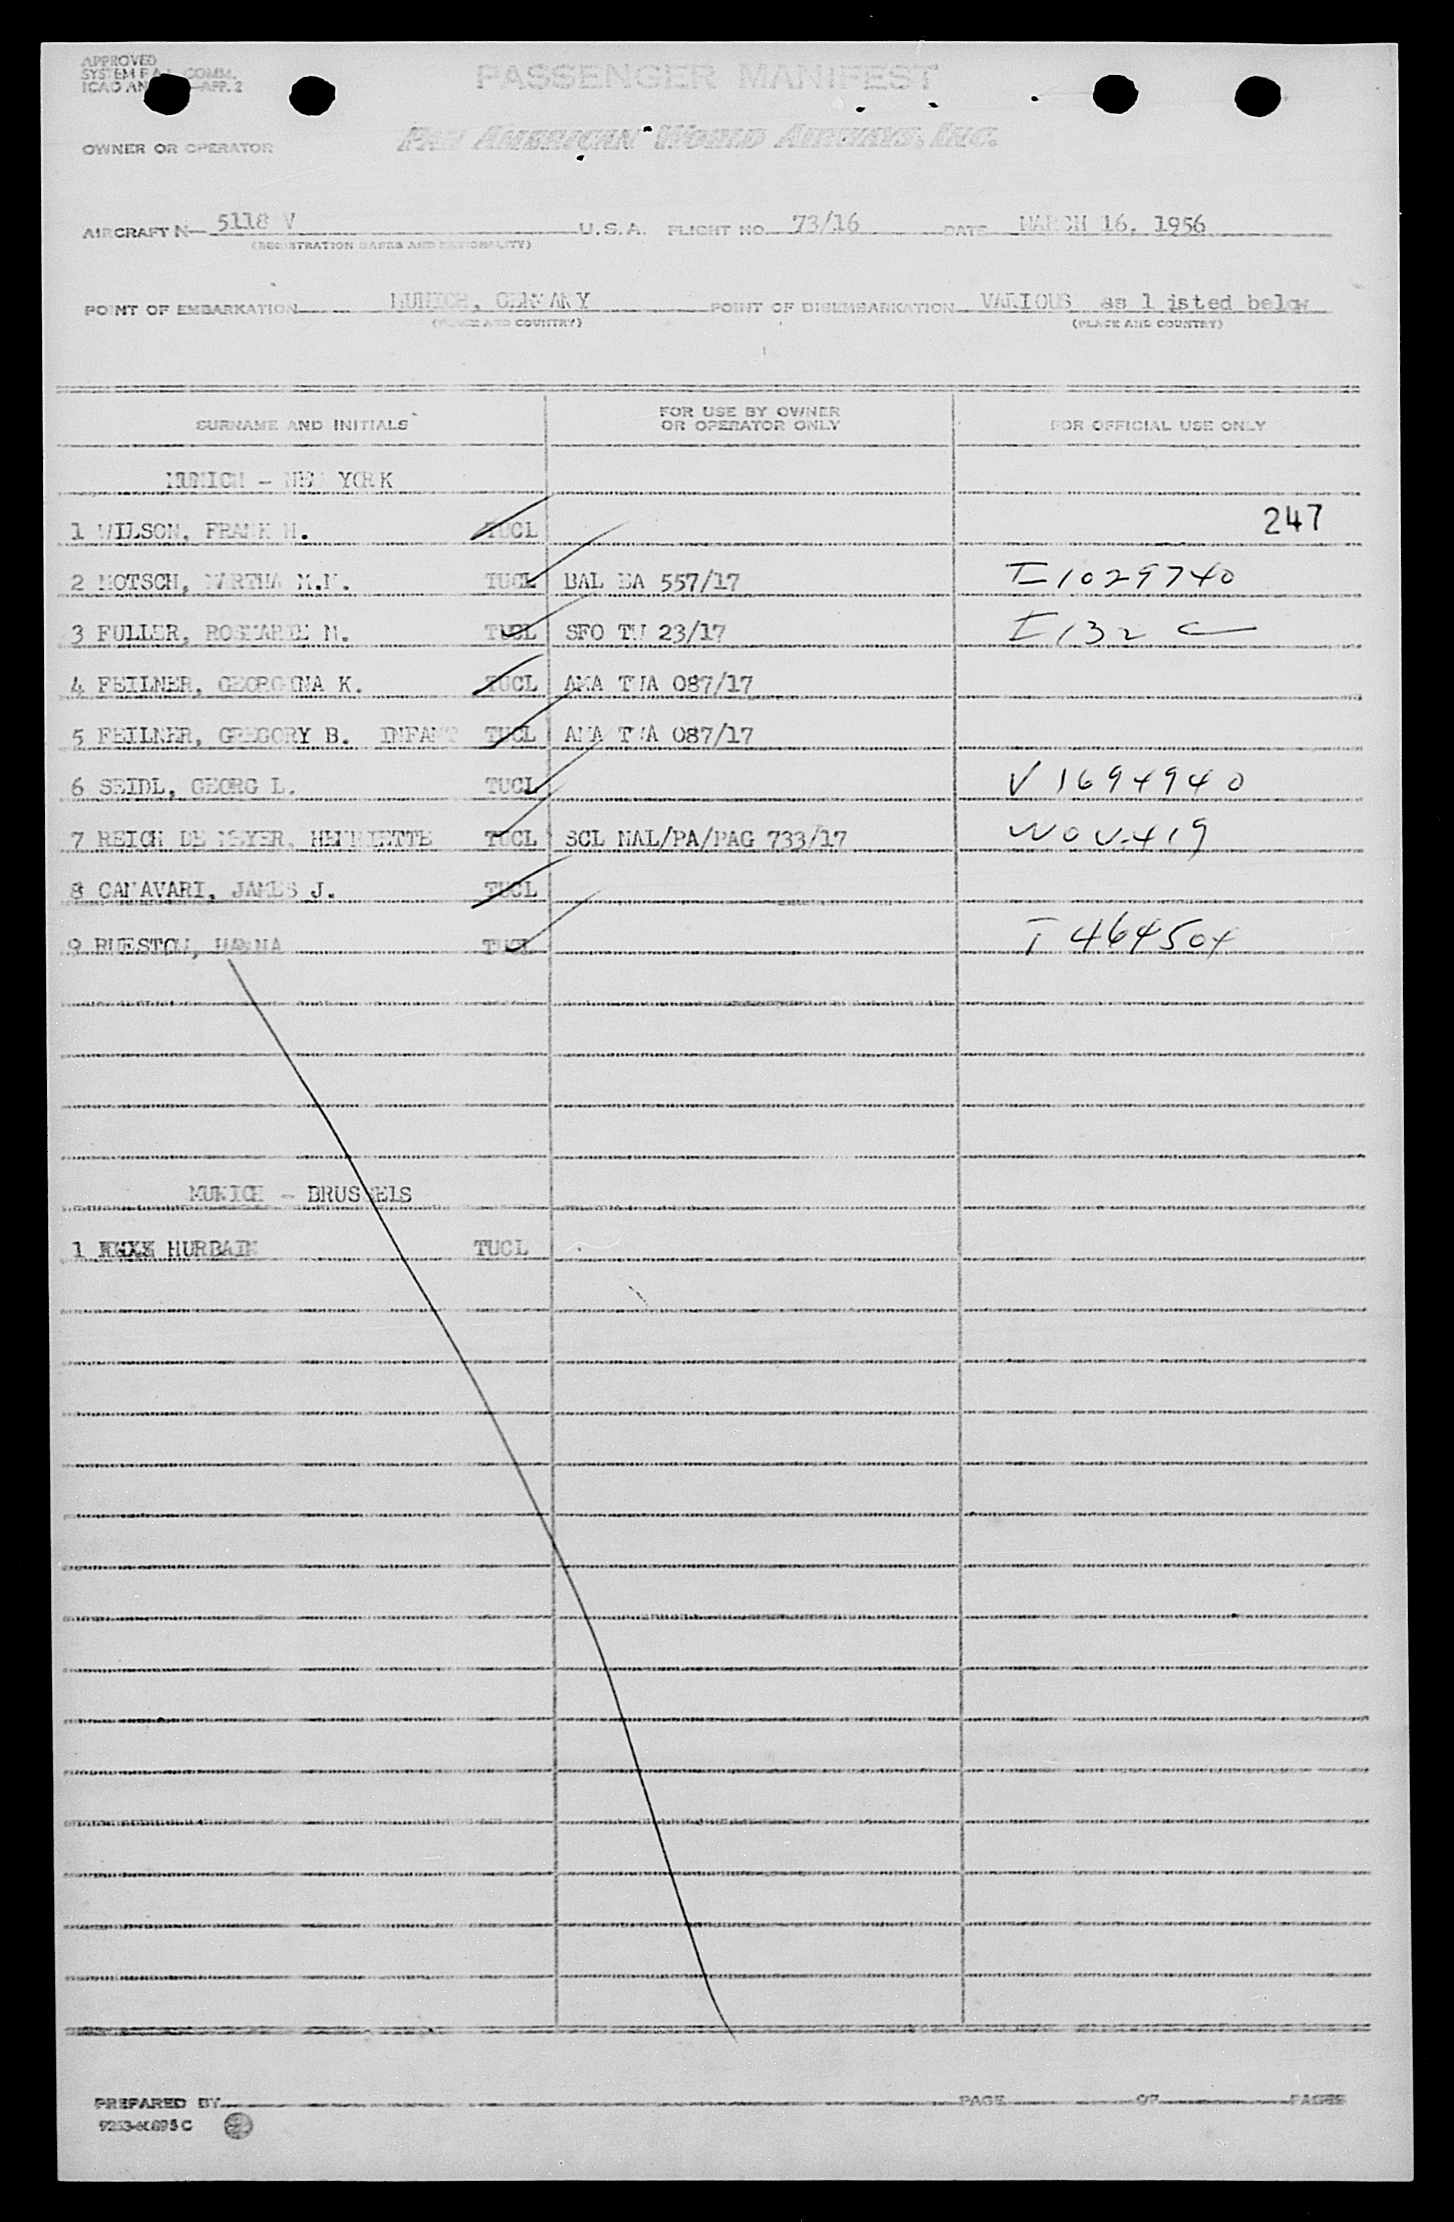 APPROVED
SYSTEM F.A.L. COMM.
ICAO AN —APP. 2
PASSENGER MANIFEST
OWNER OR OPERATOR PAN AMERICAN WORLD AIRWAYS, INC.
AIRCRAFT N— 5118 V U.S.A. FLIGHT NO. 73/16 DATE MARCH 16, 1956
(REGISTRATION MARKS AND NATIONALITY)
POINT OF EMBARKATION MUNICH, GERMANY POINT OF DISEMBARKATION VARIOUS as listed below
(PLACE AND COUNTRY) (PLACE AND COUNTRY)
SURNAME AND INITIALS FOR USE BY OWNER OR OPERATOR ONLY FOR OFFICIAL USE ONLY
MUNICH - NEW YORK
1 WILSON, FRANK H. TUCL 247
2 MOTSCH, MARTHA M.M. TUCL BAL EA 557/17 I 1029740
3 FULLER, ROSEMARIE M. TUCL SFO TW 23/17 I 132 C
4 FEILNER, GEORGINA K. TUCL AMA TWA 087/17
5 FEILNER, GREGORY B. INFANT TUCL AMA TWA 087/17
6 SEIDL, GEORG L. TUCL V 1694940
7 REICH DE MEYER, HENRIETTE TUCL SCL NAL/PA/PAG 733/17
8 CANAVARI, JAMES J. TUCL
9 RUESTOW, HANNA TUCL T 464504
MUNICH - BRUSSELS
1 HURBAIN TUCL
PREPARED BY PAGE OF PAGES